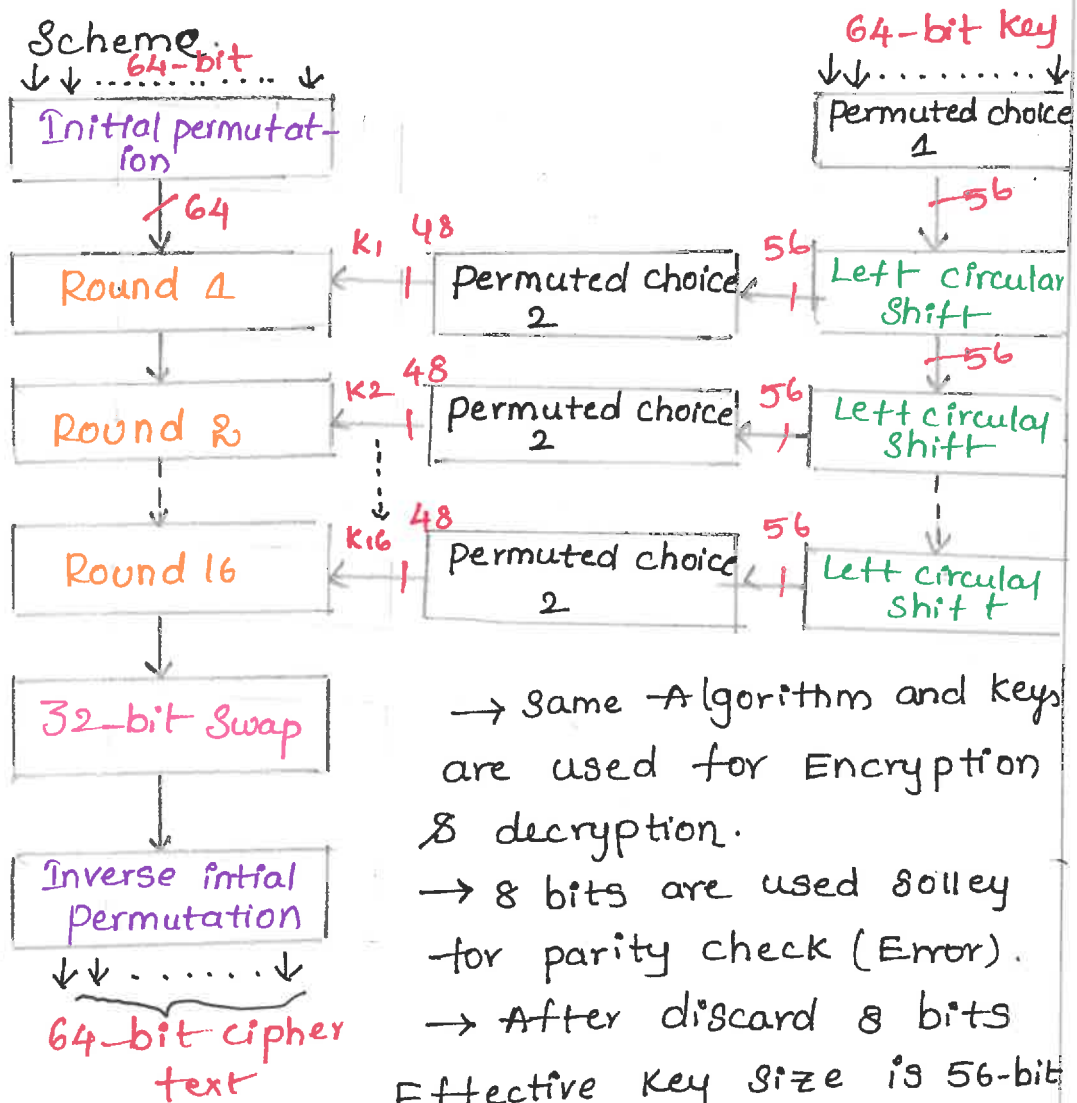 Scheme.
64-bit
Initial permutat-
ion
64
Round 1
Round 2
Round 16
32-bit Swap
Inverse intial
Permutation
64-bit cipher
text
64-bit key
Permuted choice
1
56
K1
48
Permuted choice
2
56
Left circular
Shift
56
K2
48
Permuted choice
2
56
Left circular
Shift
K16
48
Permuted choice
2
56
Left circular
Shift
→ Same Algorithm and keys
are used for Encryption
& decryption.
→ 8 bits are used solley
for parity check (Error).
→ After discard 8 bits
Effective key size is 56-bit